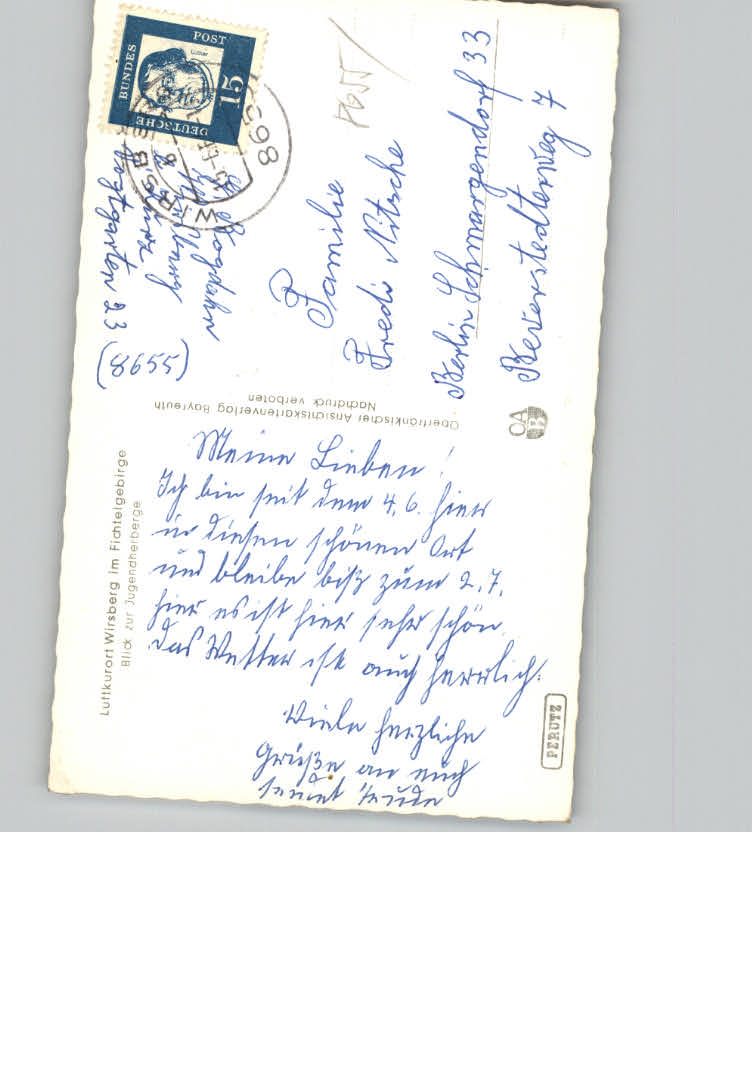 Luftkurort Wirsberg im Fichtelgebirge
Blick zur Jugendherberge
Meine Lieben!
Ich bin seit dem 4.6. hier
in diesen schönen Ort
und bleibe biß zum 2.7.
hier es ist hier sehr schön.
Das Wetter ist auch herrlich.
Viele herzliche
Grüße an euch
sendet
Oberfränkischer Ansichtskartenverlag Bayreuth
Nachdruck verboten
OA
PERUTZ
DEUTSCHE
BUNDES
POST
15
Luther
8655
WIRSB
Vogtgarten 23
(8655)
P655
Familie
Fredi Nitsche
Berlin Schmargendorf 33
Beverstedterweg 7